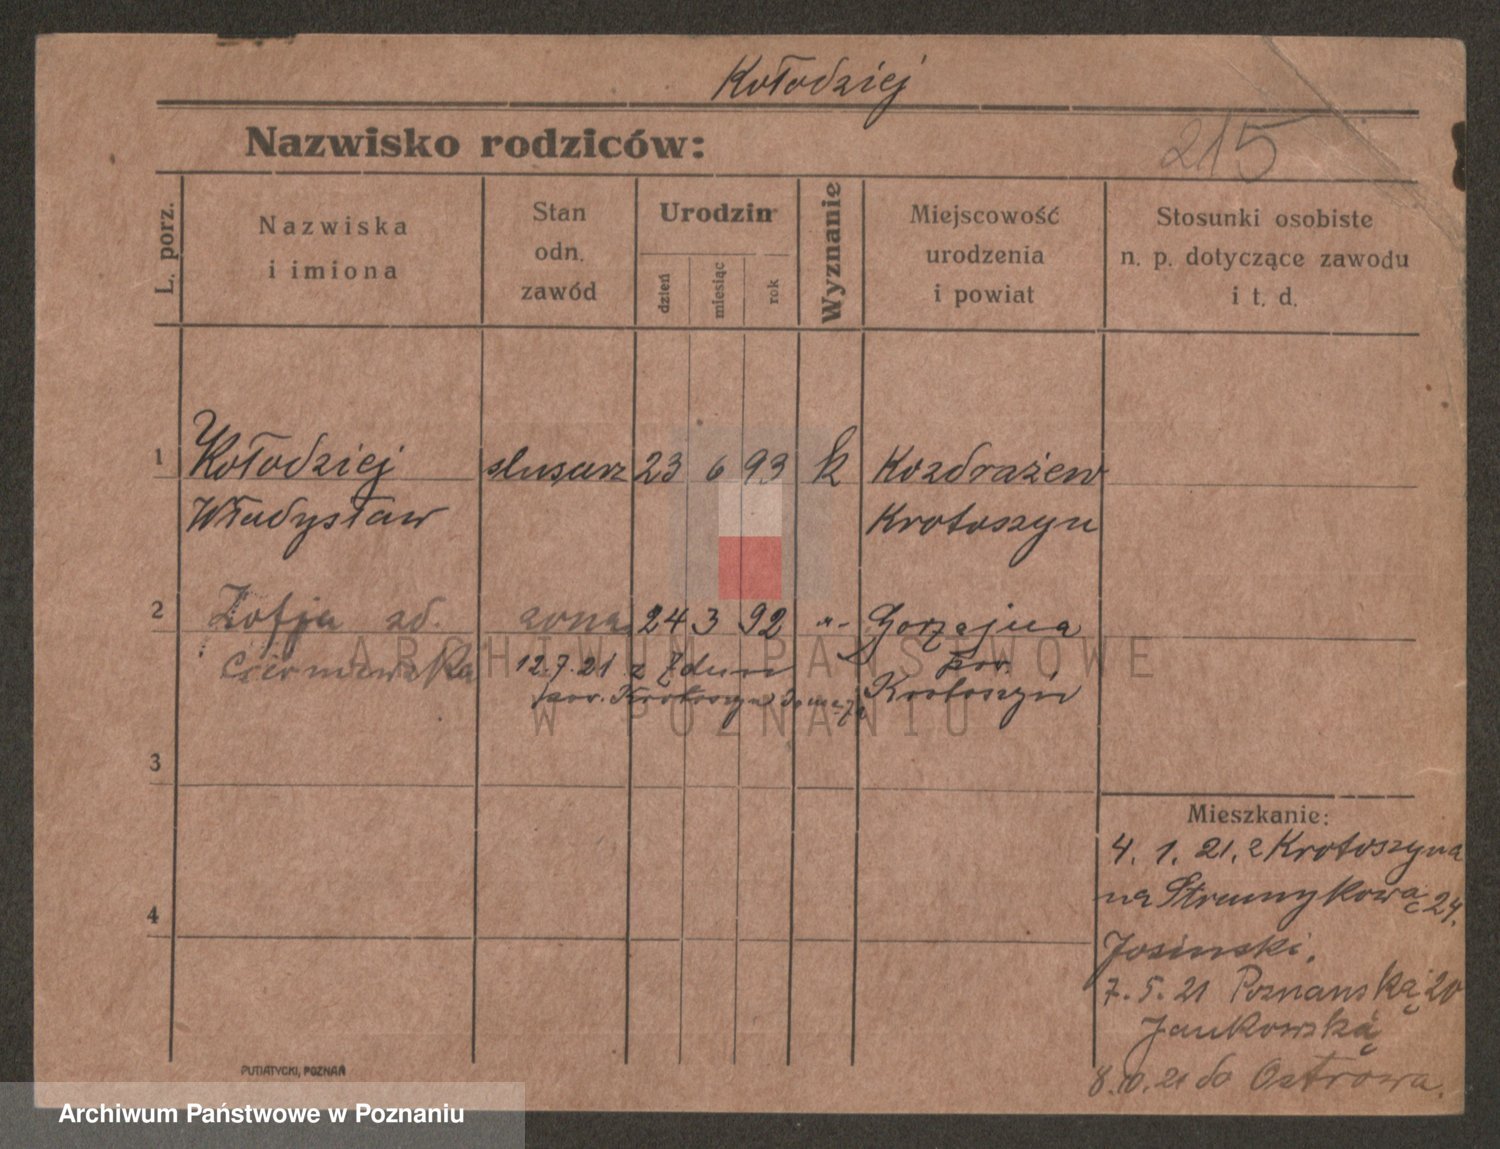 Kołodziej
Nazwisko rodziców:
215
L. porz.
Nazwiska
i imiona
Stan
odn.
zawód
Urodzin
dzień
miesiąc
rok
Wyznanie
Miejscowość
urodzenia
i powiat
Stosunki osobiste
n. p. dotyczące zawodu
i t. d.
1 Kołodziej ślusarz 23 6 93 k Kozdrażew
Władysław Krotoszyn
2 Zofja zd. żona 24 3 92 -"- Gorzajna
Czerniewska 12.7.21 z Zdun pow.
pow. Krotoszyn do męża Krotoszyn
3
4
Mieszkanie:
4. 1. 21. z Krotoszyna
na Strumykową 24.
Josinski.
7. 5. 21 Poznanską 20
Jankowską
8.10.21 do Ostrowa.
PUTIATYCKI, POZNAŃ
ARCHIWUM PAŃSTWOWE
W POZNANIU
Archiwum Państwowe w Poznaniu